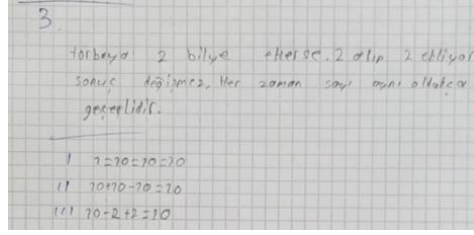 3.
torbaya 2 bilye eklerse. 2 alıp 2 ekliyor
sonuç değişmez, Her zaman sayı aynı oldukça
geçerlidir.
I ?=10=10=10
II 10+10-10=10
III 10-2+2=10